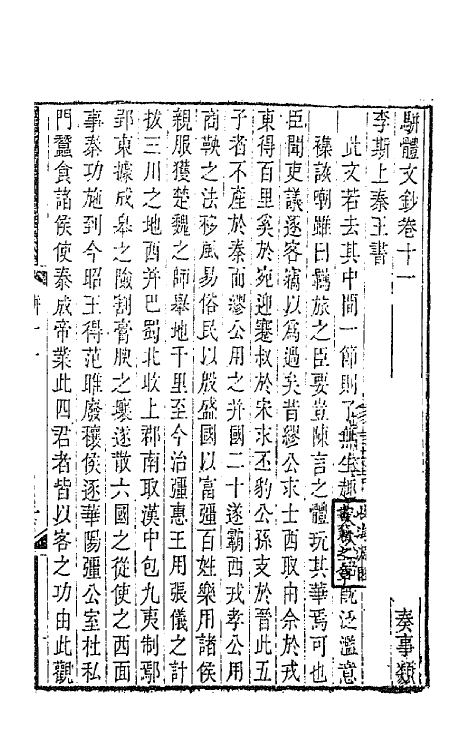 駢體文鈔卷十一
奏事類
李斯上秦王書
此文若去其中間一節則了無生趣
既泛濫意
穢該嘲雖曰羇旅之臣要豈陳言之體玩其華焉可也
臣聞吏議逐客竊以爲過矣昔繆公求士西取由余於戎
東得百里奚於宛迎蹇叔於宋求丕豹公孫支於晉此五
子者不產於秦而繆公用之并國二十遂霸西戎孝公用
商鞅之法移風易俗民以殷盛國以富彊百姓樂用諸侯
親服獲楚魏之師舉地千里至今治彊惠王用張儀之計
拔三川之地西并巴蜀北收上郡南取漢中包九夷制鄢
郢東據成臯之險割膏腴之壤遂散六國之從使之西面
事秦功施到今昭王得范雎廢穰侯逐華陽彊公室杜私
門蠶食諸侯使秦成帝業此四君者皆以客之功由此觀